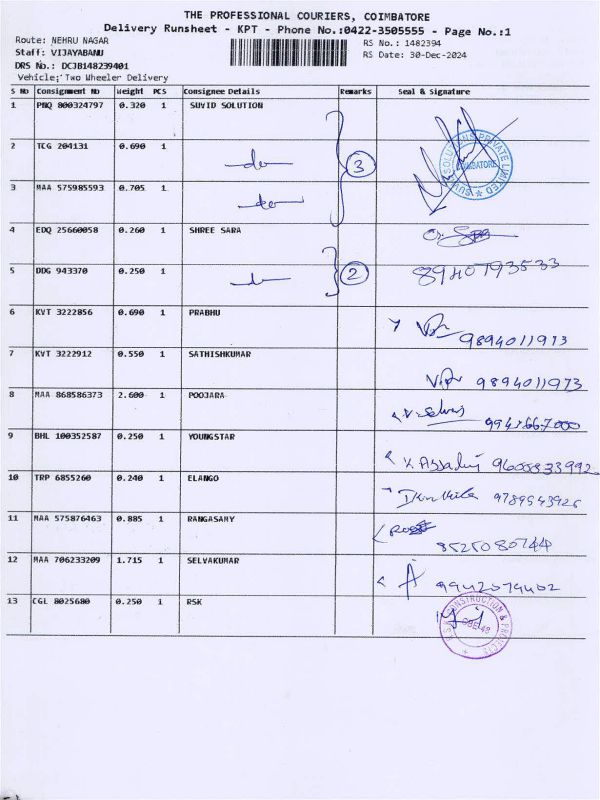 THE PROFESSIONAL COURIERS, COIMBATORE
Delivery Runsheet - KPT - Phone No.:0422-3505555 - Page No.:1
Route: NEHRU NAGAR
RS No.: 1482394
Staff: VIJAYABANU
RS Date: 30-Dec-2024
DRS No.: DCJB148239401
Vehicle: Two Wheeler Delivery
S No Consignment No Weight PCS Consignee Details Remarks Seal & Signature
1 PNQ 800324797 0.320 1 SUVID SOLUTION
2 TCG 204131 0.690 1 do 3
3 MAA 575985593 0.705 1 do
4 EDQ 25660058 0.260 1 SHREE SARA
5 DDG 943370 0.250 1 do 2 8940793533
6 KVT 3222856 0.690 1 PRABHU 9894011973
7 KVT 3222912 0.550 1 SATHISHKUMAR 9894011973
8 MAA 868586373 2.600 1 POOJARA
9 BHL 100352587 0.250 1 YOUNGSTAR
10 TRP 6855260 0.240 1 ELANGO
11 MAA 575876463 0.885 1 RANGASAMY 8525080744
12 MAA 706233209 1.715 1 SELVAKUMAR
13 CGL 8025680 0.250 1 RSK